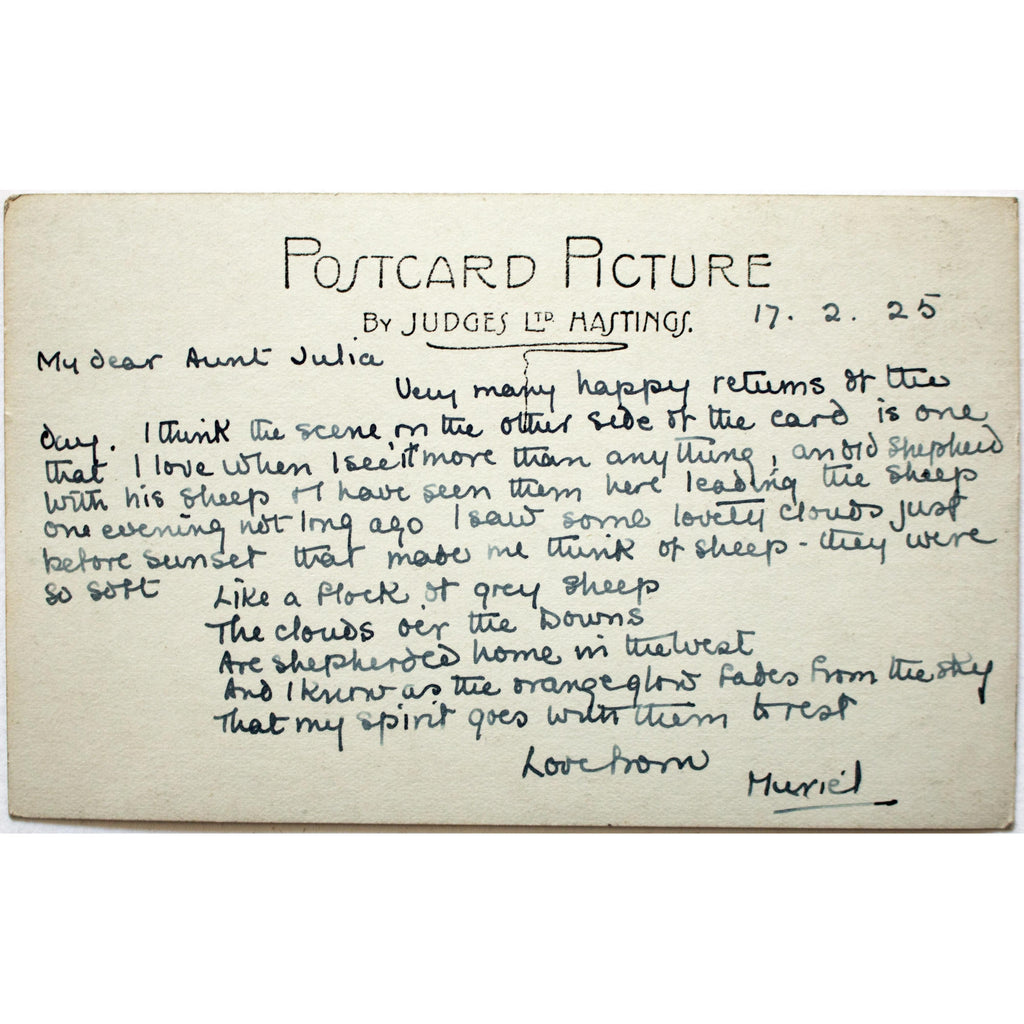 POSTCARD PICTURE
BY JUDGES LTD. HASTINGS.
17. 2. 25
My dear Aunt Julia
Very many happy returns of the
day. I think the scene on the other side of the card is one
that I love when I see it more than anything, an old shepherd
with his sheep & I have seen them here leading the sheep
one evening not long ago I saw some lovely clouds just
before sunset that made me think of sheep - they were
so soft
Like a flock of grey sheep
The clouds o'er the Downs
Are shepherded home in the west
And I know as the orange glow fades from the sky
That my spirit goes with them to rest
Love from
Muriel